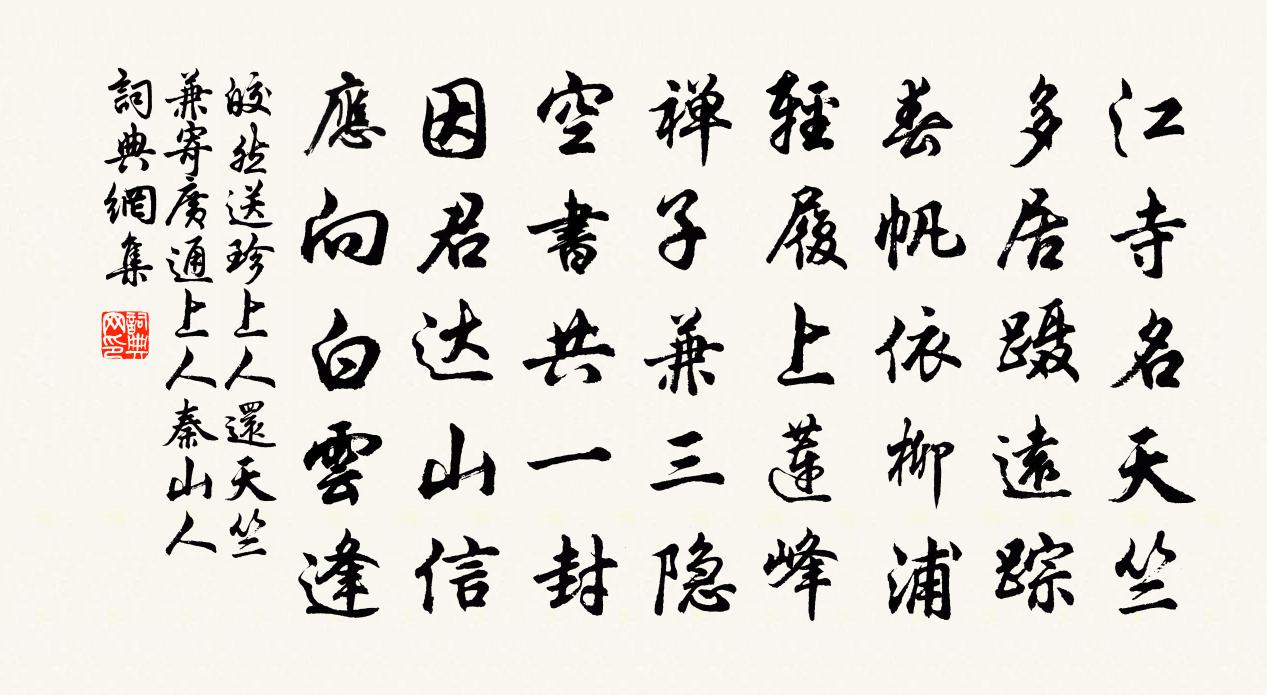 江寺名天竺
多居蹑遠踪
春帆依柳浦
輕履上蓮峰
禅子兼三隐
空書共一封
因君达山信
應向白雲逢
皎然送珍上人還天竺
兼寄廣通上人秦山人
詞典網集
詞典网印